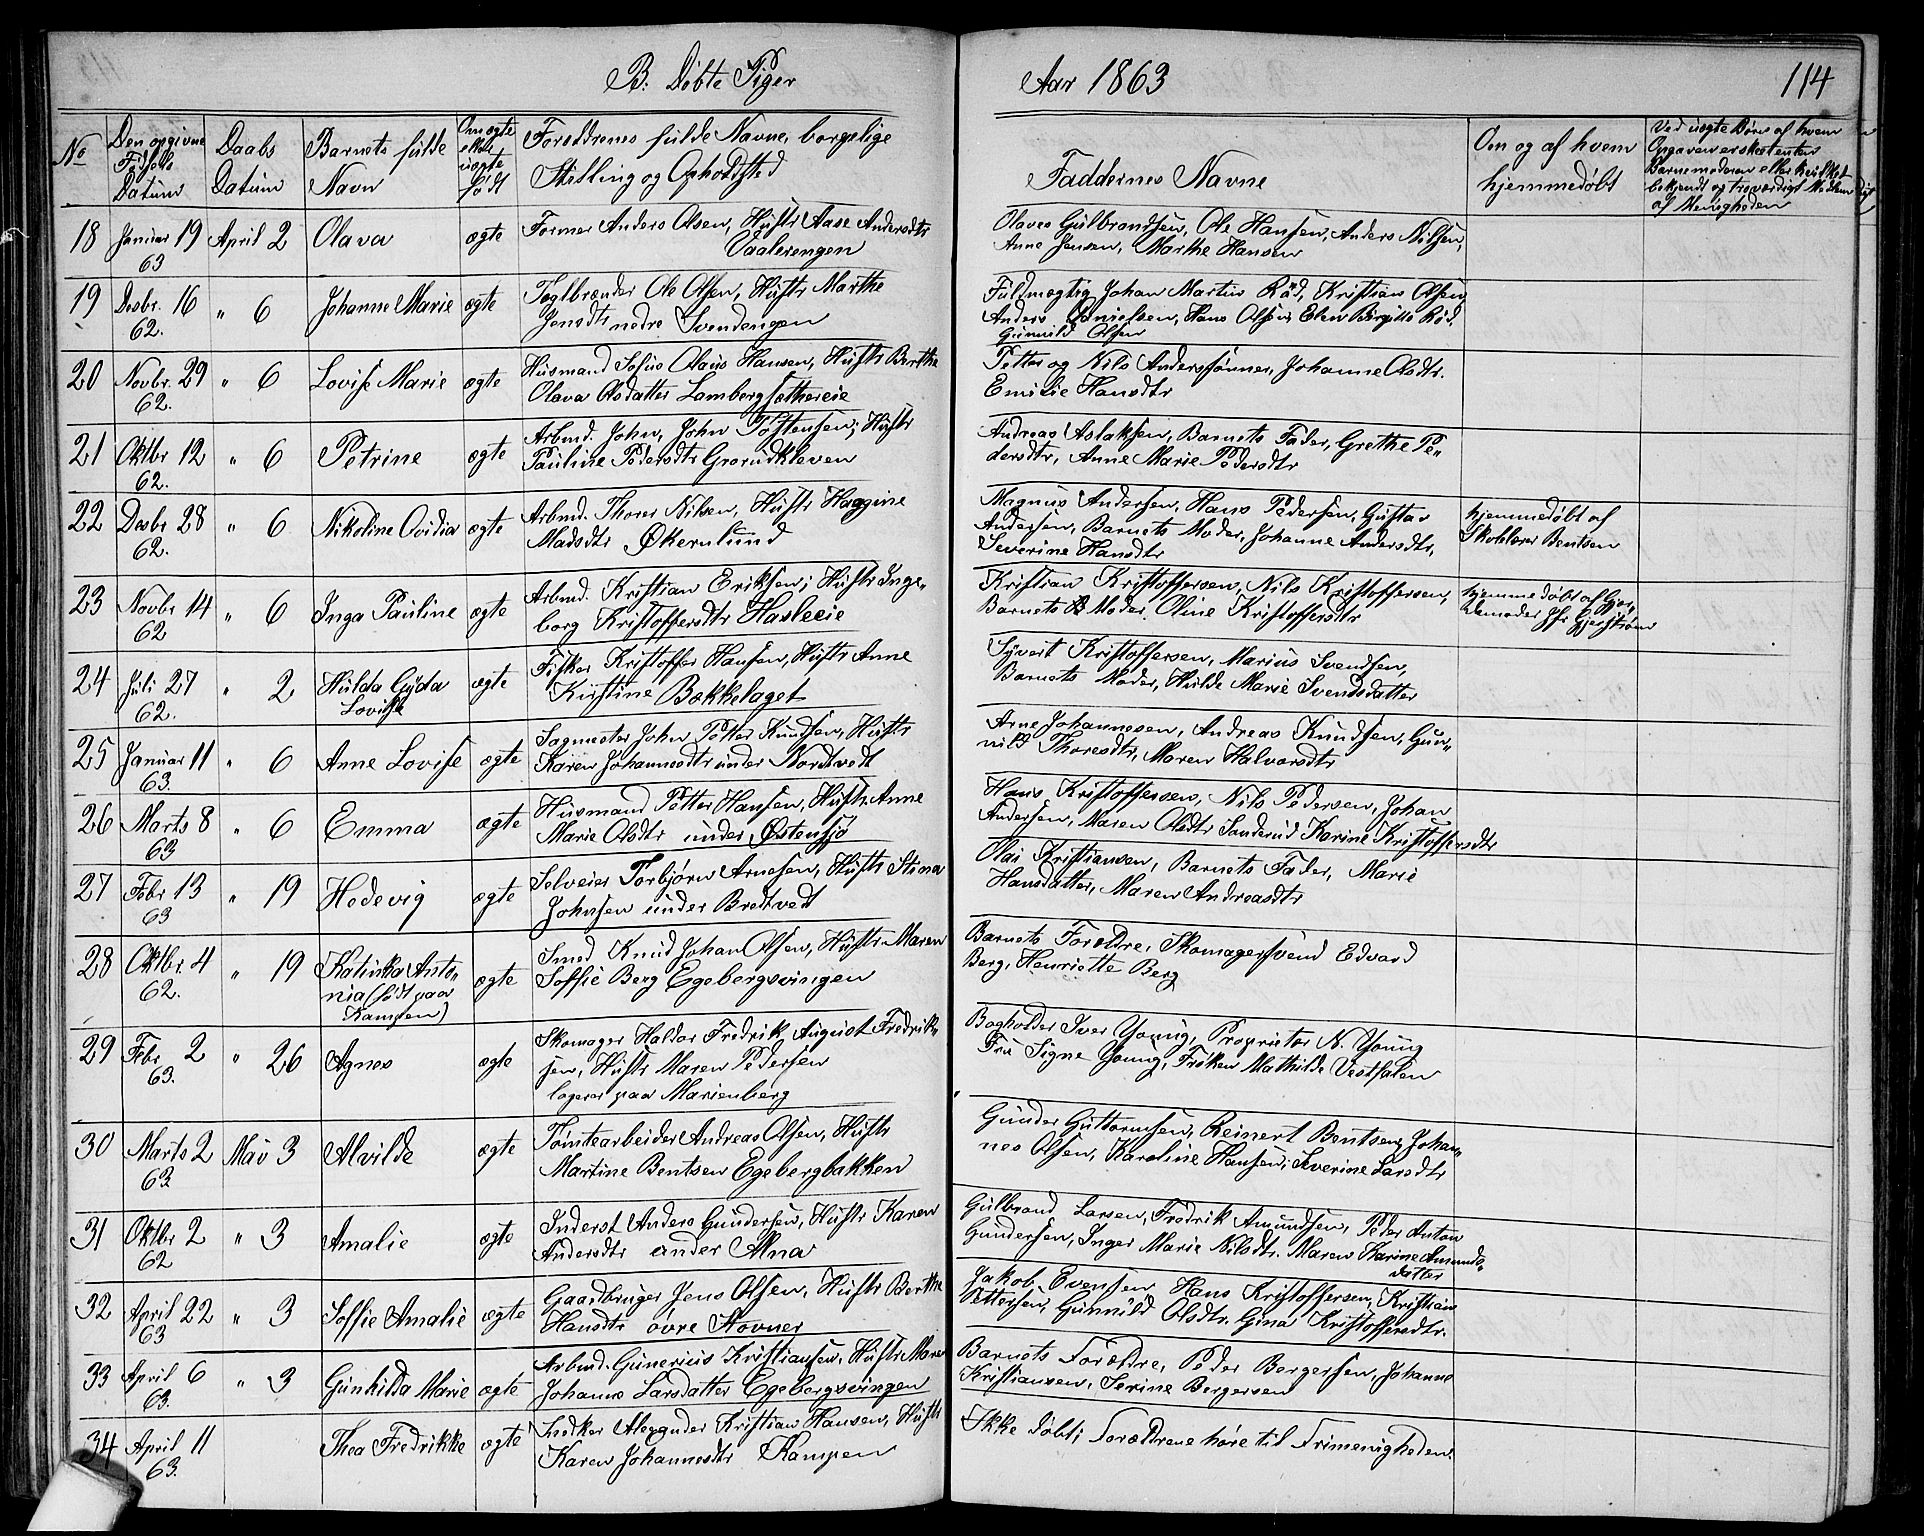 B. Døbte Piger
Aar 1863
114
No
Den opgivne Fødsels Datum
Daabs Datum
Barnets fulde Navn
Om ægte eller uægte født
Forældrenes fulde Navne, borgelige Stilling og Opholdsted
Faddernes Navne
Om og af hvem hjemmedøbt
Ved uægte Børn af hvem Opgaven er skeet enten Barnemoderen eller hvilket bekjendt og troværdigt Medlem af Menigheden
18 Januar 19 April 2 Olava ægte Former Anders Olsen, Hustr Aase Andersdtr
63 Vaalerengen
Olaves Gulbrandsen, Ole Hansen, Anders Nilsen,
Anne Jensen, Marthe Hansen
19 Desbr. 16 " 6 Johanne Marie ægte Teglbrænder Ole Olsen, Hustr Marthe
62. Jensdtr nedre Svendengen
Fuldmægtig Johan Martius Rød, Kristian Olsen
Anders Danielsen, Hans Olsen, Elen Birgitte Rød.
Gunnild Olsen
20 Novbr. 29 " 6 Lovise Marie ægte Husmand Sofus Olaus Hansen, Hustr Berthe
62. Olava Olsdatter Lambergsæthereie
Petter og Nils Anderssønner, Johanne Olsdtr.
Emilie Hansdtr
21 Oktbr 12 " 6 Petrine ægte Arbmd. John, John Tostensen, Hustr
62. Pauline Pedersdtr Grorudkleven
Andreas Aslaksen, Barnets Fader, Grethe Pe„
dersdtr, Anne Marie Pedersdtr
22 Desbr 28 " 6 Nikoline Ovidia ægte Arbmd. Thorer Nilsen, Hustr Hagine
62. Madsdtr Økernlund
Magnus Andersen, Hans Pedersen, Gustav
Andersen, Barnets Moder, Johanne Andersdtr,
Severine Hansdtr
hjemmedøbt af
Skolelærer Bentsen
23 Novbr 14 " 6 Inga Pauline ægte Arbmd. Kristian Eriksen, Hustr Inge„
62 borg Kristoffersdtr Hasleeie
Kristian Kristoffersen, Nils Kristoffersen,
Barnets Moder, Oline Kristoffersdtr
hjemmedøbt af Gjor„
demoder Jfr Gjerstrøm
24 Juli 27 " 2 Hulda Gyda ægte Fisker Kristoffer Hansen, Hustr Anne
62. Lovise Kristine Bekkelaget
Syvert Kristoffersen, Marius Svendsen,
Barnets Moder, Hulde Marie Svendsdatter
25 Januar 11 " 6 Anne Lovise ægte Sagmester John Petter Knudsen, Hustr
63. Karen Johannesdtr under Nordtvedt
Arne Johannesen, Andreas Knudsen, Gun„
nild Thoresdtr, Maren Halvorsdtr
26 Marts 8 " 6 Emma ægte Husmand Petter Hansen, Hustr. Anne
63 Marie Olsdtr under Østensjø
Hans Kristoffersen, Nils Pedersen, Johan
Andersen, Maren Olsdtr Sanderud Karine Kristoffersdtr
27 Febr 13 " 19 Hedevig ægte Selveier Torbjørn Arnesen, Hustr Stina
63 Johnsen under Bredtvedt
Olai Kristiansen, Barnets Fader, Marie
Hansdatter, Maren Andreasdtr
28 Oktbr. 4 " 19 Katinka Anto„ ægte Smed Knud Johan Olsen, Hustr Maren
62. nia (født paa Soffie Berg Egebergsvingen
Kampen)
Barnets Forældre, Skomagersvend Edvard
Berg, Henriette Berg
29 Febr 2 " 26 Agnes ægte Skomager Haldor Fredrik August Fredrik„
63. sen, Hustr Maren Pedersen
logerer paa Marienberg
Bogholder Iver Young, Proprietær N. Young
Fru Signe Young, Frøken Mathilde Vestfalen
30 Marts 2 Mai 3 Alvilde ægte Tomtearbeider Andreas Olsen, Hustr
63 Martine Bentsen Egebergbakken
Gunder Guttormsen, Reinert Bentsen, Johan„
nes Olsen, Karoline Hansen, Severine Larsdtr
31 Oktbr 2 " 3 Amalie ægte Inderst Anders Gundersen, Hustr Karen
62 Andersdtr under Alna
Gulbrand Larsen, Fredrik Amundsen, Peder Anton
Gundersen, Inger Marie Nilsdtr. Maren Karine Amunds„
datter
32 April 22 " 3 Soffie Amalie ægte Gaardbruger Jens Olsen, Hustr Berthe
63 Hansdtr øvre Stovner
Jakob Evensen, Hans Kristoffersen, Kristian
Pettersen, Gunnild Olsdtr. Gina Kristoffersdtr.
33 April 6 " 3 Gunhilda Marie ægte Arbmd. Gunerius Kristiansen, Hustr Maren
63. Johanne Larsdatter Egebergsvingen
Barnets Forældre, Peder Bergersen, Johanne
Kristiansen, Serine Bergersen
34 April 11 Thea Fredrikke ægte Snedker Alexander Kristian Hansen, Hustr
63. Karen Johannesdtr Kampen
Ikke døbt; Forældrene høre til Frimenigheden.